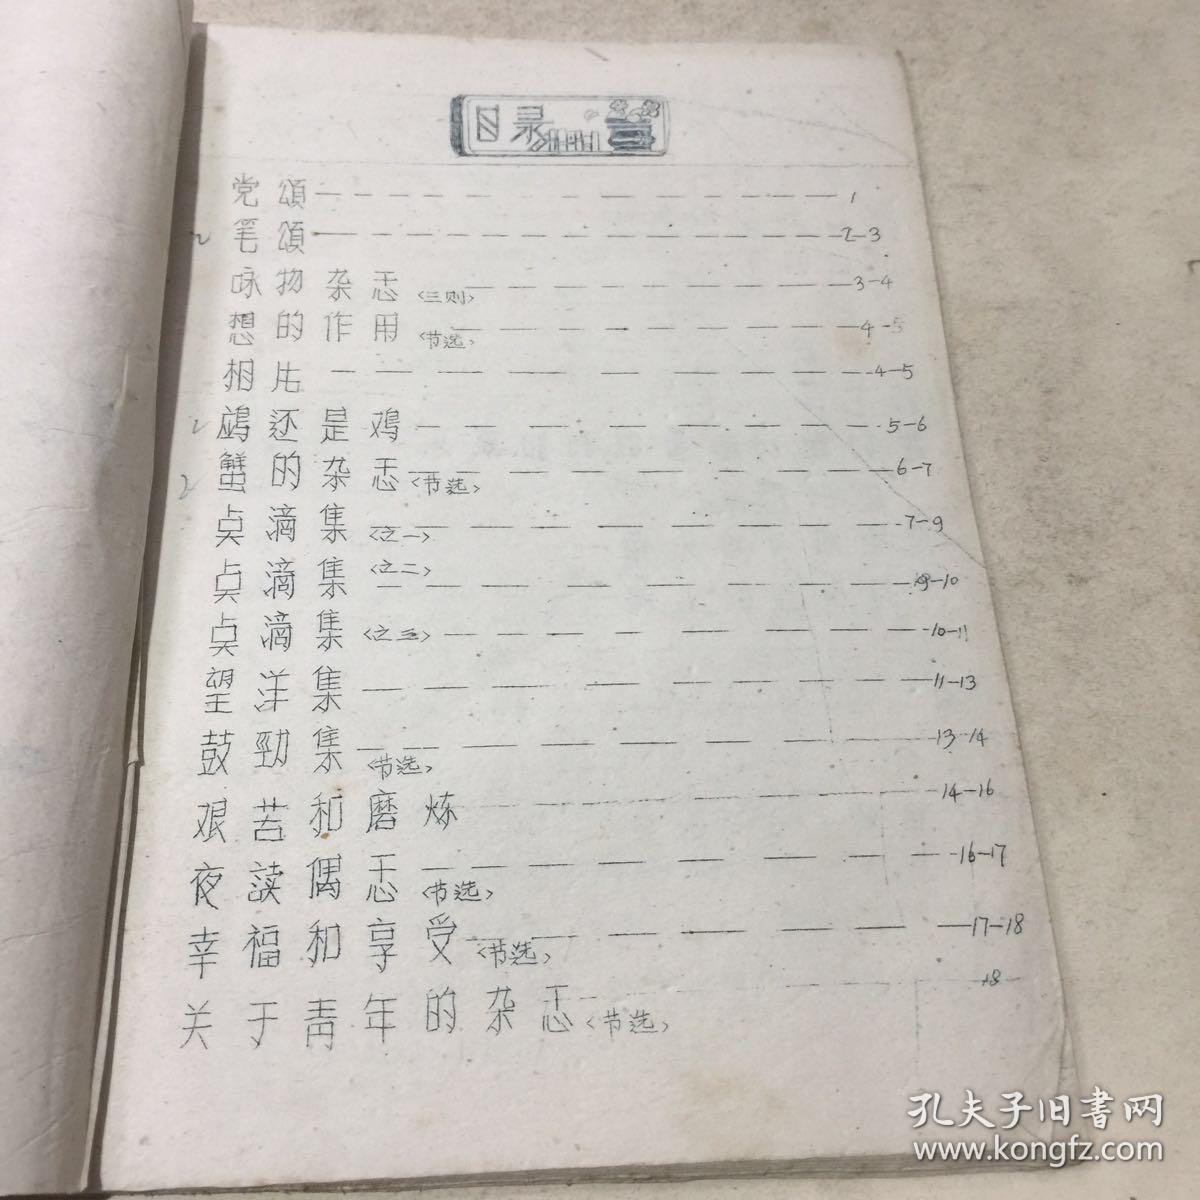 目录
党頌 1
笔頌 2-3
咏物杂忎〈三则〉 3-4
想的作用〈节选〉 4-5
相片 4-5
鸡还是鸡 5-6
蟹的杂忎〈节选〉 6-7
点滴集〈之一〉 7-9
点滴集〈之二〉 9-10
点滴集〈之三〉 10-11
望洋集 11-13
鼓勁集〈节选〉 13-14
艰苦和磨炼 14-16
夜读偶忎〈节选〉 16-17
幸福和享受〈节选〉 17-18
关于青年的杂忎〈节选〉 18
孔夫子旧书网
www.kongfz.com